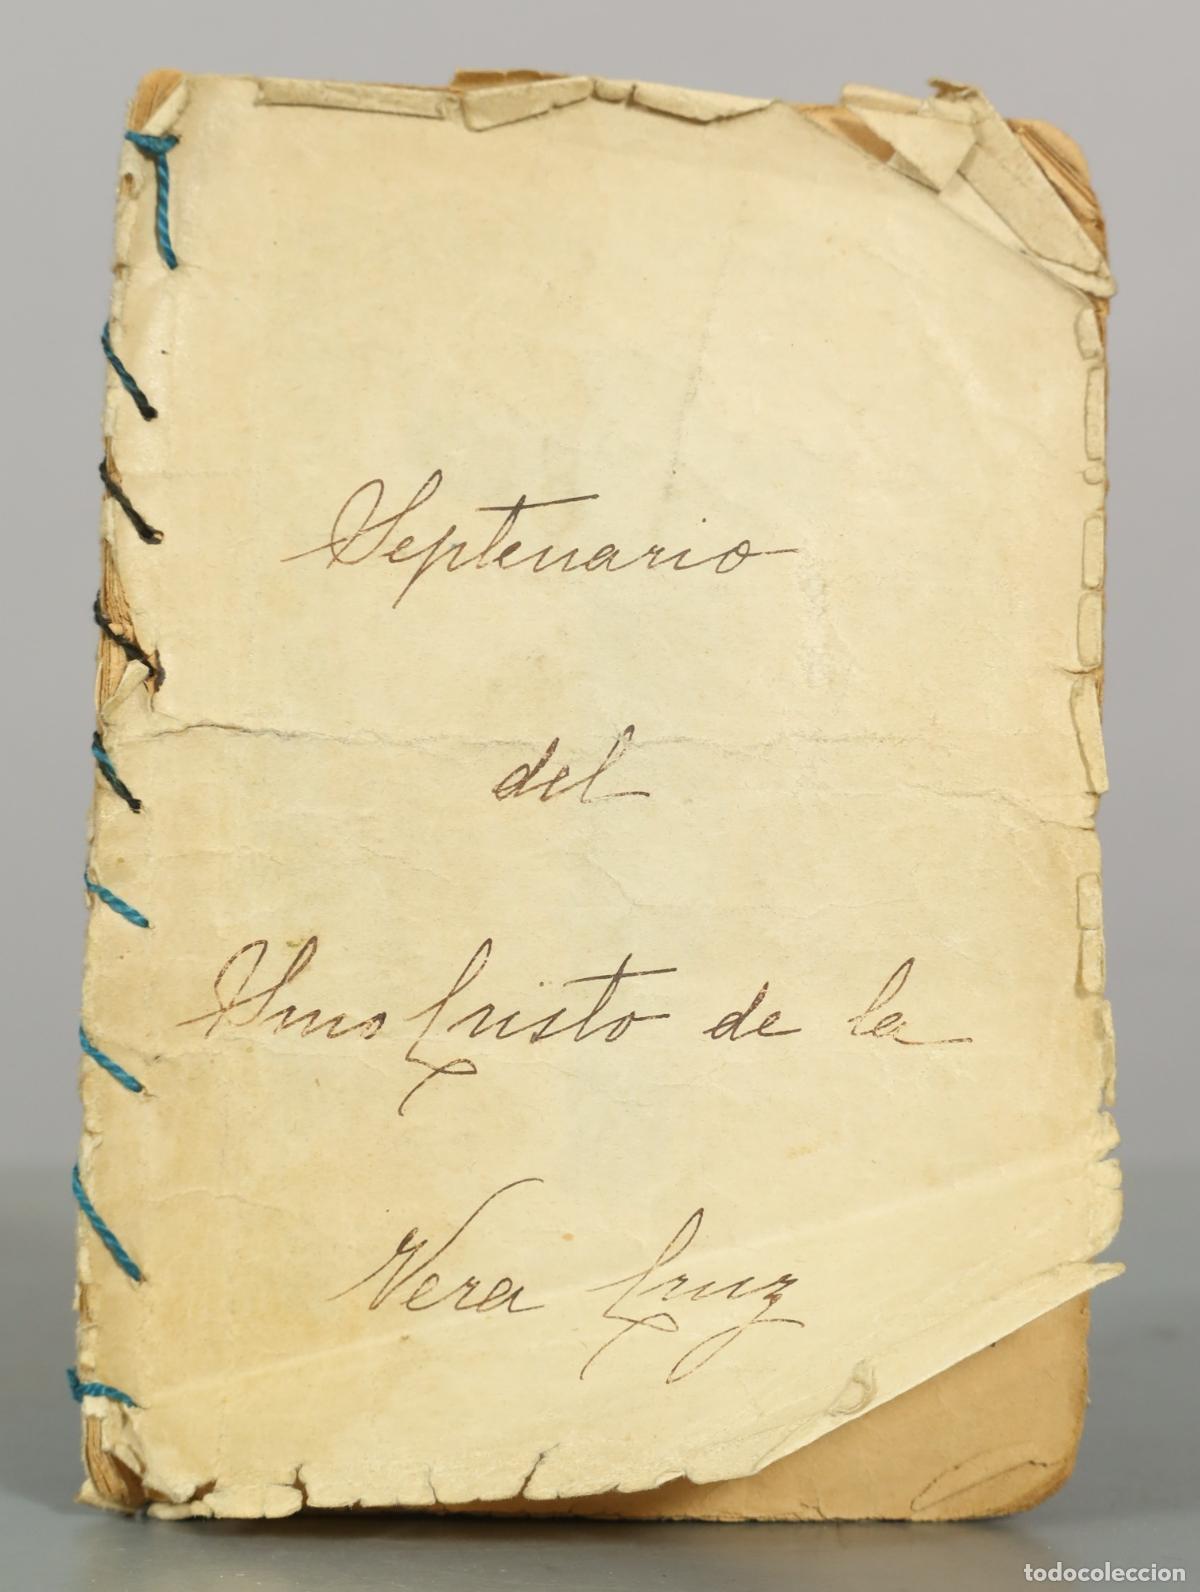 Septenario
del
Smo Cristo de la
Vera Cruz
todocoleccion